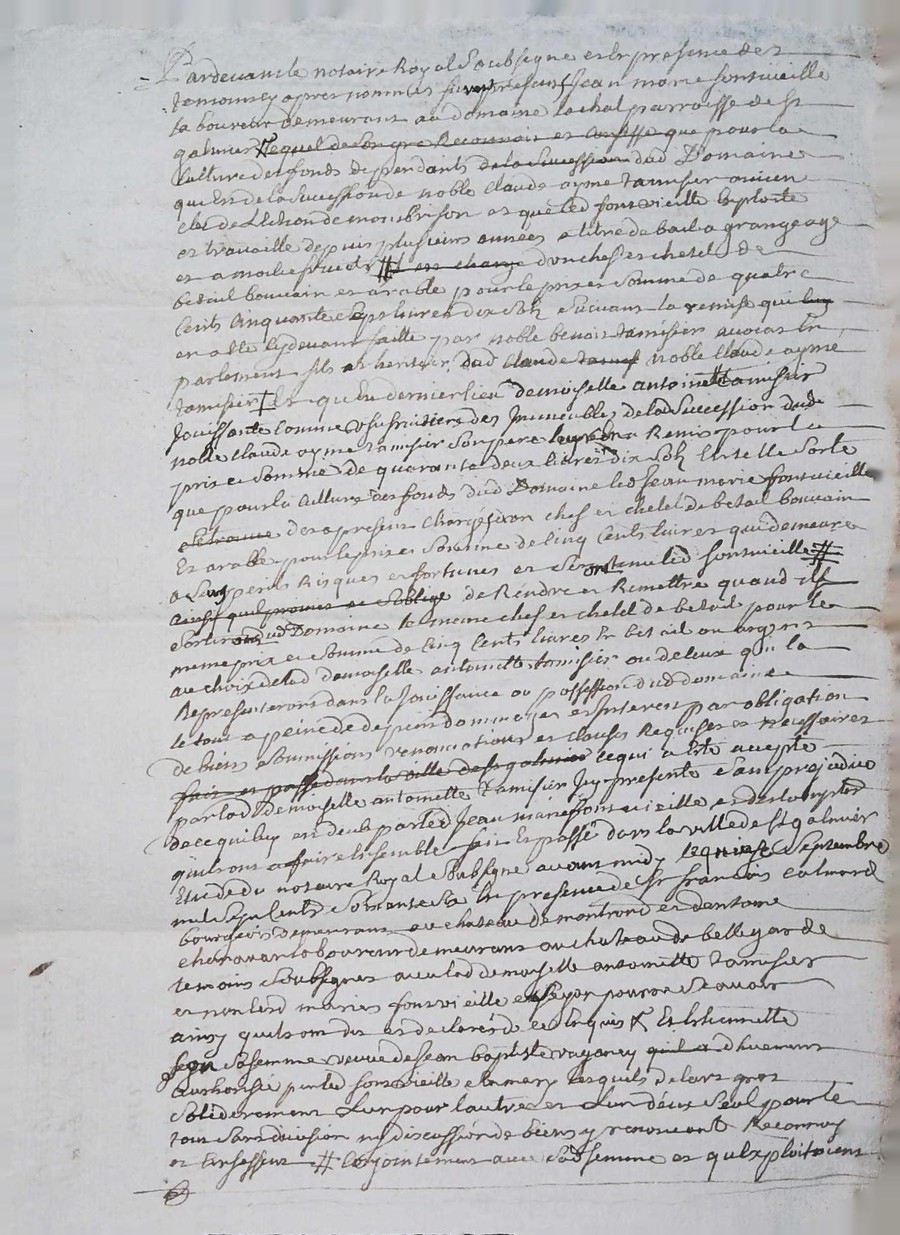 Pardevant le notaire Royal Soubsigne et en presence des
temoins cy apres nommes fut present Jean marie fontvieille
laboureur demeurant au domaine Lachal parroisse de st
galmier lequel de son gre Reconnoit et confesse que pour la
Culture des fonds dependants de la Succession dud Domaine
que de la Succession de noble Claude ayme tamisier ancien
de montbrison et que led fontvieille Exploite
et travaille depuis plusieurs années a titre de bail a grangeage
et a moitie fruits # est charge d'un chef et chetel de
betail bouvain et arable pour le prix et Somme de quatre
Cents Cinquante sept livres dix Sols Suivant la remise qui luy
en a ete cydevant faitte par noble benoit tamisier avocat En
parlement fils et heritier dud Claude tamis noble Claude aymé
tamisier + Et qu'en dernier lieu demoiselle antoinette tamisier
Jouissante comme usufruitiere des Immeubles de la Succession dude
noble Claude ayme tamisier Son pere luy en a Remis pour le
prix et Somme de quarante deux livres dix Sols En telle Sorte
que pour la Culture des fonds dud Domaine led Jean marie fontvieille
se trouve des a present Chargés d'un chef et chetel de betail bouvain
Et arable pour le prix et Somme de Cinq Cents livres qui demeure
a Leurs perils Risques et fortunes et Seront tenu led fontvieille #
ainsi quil promet et S'oblige de Rendre et Remettre quand ils
Sortiront dud Domaine le meme chef et chetel de betail pour le
meme prix et Somme de Cinq Cents livres En betail ou argent
au choix de lad demoiselle antoinette tamisier ou de ceux qui la
Representeront dans la Jouissance ou possession dud domaine
le tout a peine de depens dommages et Interets par obligation
de biens Soumissions renonciations et clauses Requises et necessaires
fait et passé dans la ville de st galmier ce qui a Eté accepté
par lad demoiselle antoinette tamisier Icy presente Sans prejudice
de ce qui luy est deub par led Jean marie fontvieille et des comptes
quils ont a faire ensemble fait Et passé dans la ville de st galmier
Etude du notaire Royal Soubsigne avant midy le Septembre
mil Sept Cents Soixante En presence de Sr françois Calmard
bourgeois demeurant au chateau de montrond et d'antoine
laboureur demeurant au chateau de bellegarde
temoins Soubsignes avec lad demoiselle antoinette tamisier
et non led marie fontvieille pour ne Scavoir
ainsy quils ont dit et declaré de ce Enquis & Et Etiennette
Sa femme veuve de Jean baptiste quil a d'huement
authorisée par led fontvieille Son mary lesquels de leurs gres
Solidairement L'un pour l'autre et L'un d'eux Seul pour le
tout Sans division ny discussion de biens y renoncant Reconnoit
et Confessent # Conjointement avec Sad femme et qu'Exploitoient